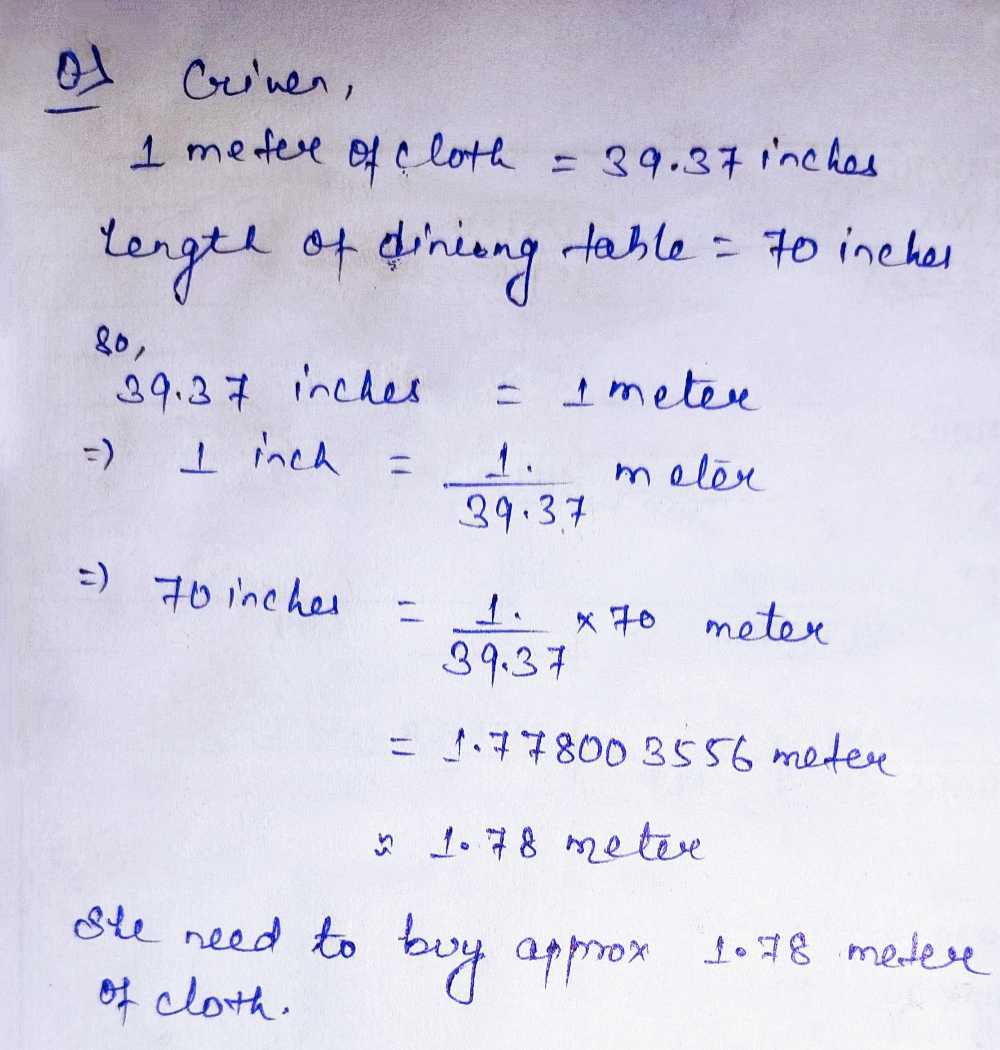 Q) Given,
1 meter of cloth = 39.37 inches
length of dining table = 70 inches
so,
39.37 inches = 1 meter
=) 1 inch = 1. / 39.37 meter
=) 70 inches = 1. / 39.37 x 70 meter
= 1.778003556 meter
≈ 1.78 meter
She need to buy approx 1.78 meter
of cloth.